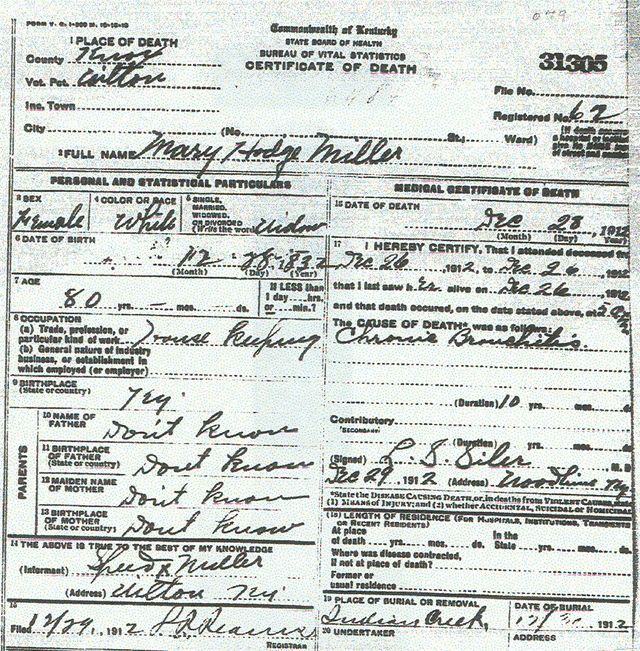 FORM V. S. 1-
079
Commonwealth of Kentucky
STATE BOARD OF HEALTH
BUREAU OF VITAL STATISTICS
CERTIFICATE OF DEATH
31305
1 PLACE OF DEATH
County Knox
Vot. Pct. Wilton
Inc. Town
City (No. St.; Ward)
File No.
Registered No. 62
2 FULL NAME Mary Hodge Miller
PERSONAL AND STATISTICAL PARTICULARS
3 SEX Female
4 COLOR OR RACE White
5 SINGLE, MARRIED, WIDOWED, OR DIVORCED (Write the word) Widow
6 DATE OF BIRTH
12 28 1832
(Month) (Day) (Year)
7 AGE
80 yrs. mos. ds.
If LESS than 1 day hrs. or min.?
8 OCCUPATION
(a) Trade, profession, or particular kind of work House Keeping
(b) General nature of industry business, or establishment in which employed (or employer)
9 BIRTHPLACE (State or country) Ky.
PARENTS
10 NAME OF FATHER Don't know
11 BIRTHPLACE OF FATHER (State or country) Don't know
12 MAIDEN NAME OF MOTHER Don't know
13 BIRTHPLACE OF MOTHER (State or country) Don't know
14 THE ABOVE IS TRUE TO THE BEST OF MY KNOWLEDGE
(Informant) Speed Miller
(Address) Wilton Ky.
15
Filed 12/29, 1912
REGISTRAR
MEDICAL CERTIFICATE OF DEATH
16 DATE OF DEATH
Dec 28, 1912
(Month) (Day) (Year)
17 I HEREBY CERTIFY, That I attended deceased from
Dec 26 1912, to Dec 26 1912
that I last saw her alive on Dec 26 1912
and that death occured, on the date stated above, at 5
The CAUSE OF DEATH* was as follows:
Chronic Bronchitis.
(Duration) 10 yrs. mos.
Contributory
SECONDARY
(Duration) yrs. mos.
(Signed) L. S. Siler M. D.
Dec 29 1912 (Address) Woodbine Ky
*State the DISEASE CAUSING DEATH, or, in deaths from VIOLENT CAUSES
(1) MEANS OF INJURY; and (2) whether ACCIDENTAL, SUICIDAL or HOMICIDAL
(18) LENGTH OF RESIDENCE (FOR HOSPITALS, INSTITUTIONS, TRANSIENTS
OR RECENT RESIDENTS)
At place of death yrs. mos. ds.
In the State yrs. mos.
Where was disease contracted,
if not at place of death?
Former or usual residence
19 PLACE OF BURIAL OR REMOVAL
Indian Creek
DATE OF BURIAL
1912
20 UNDERTAKER
ADDRESS